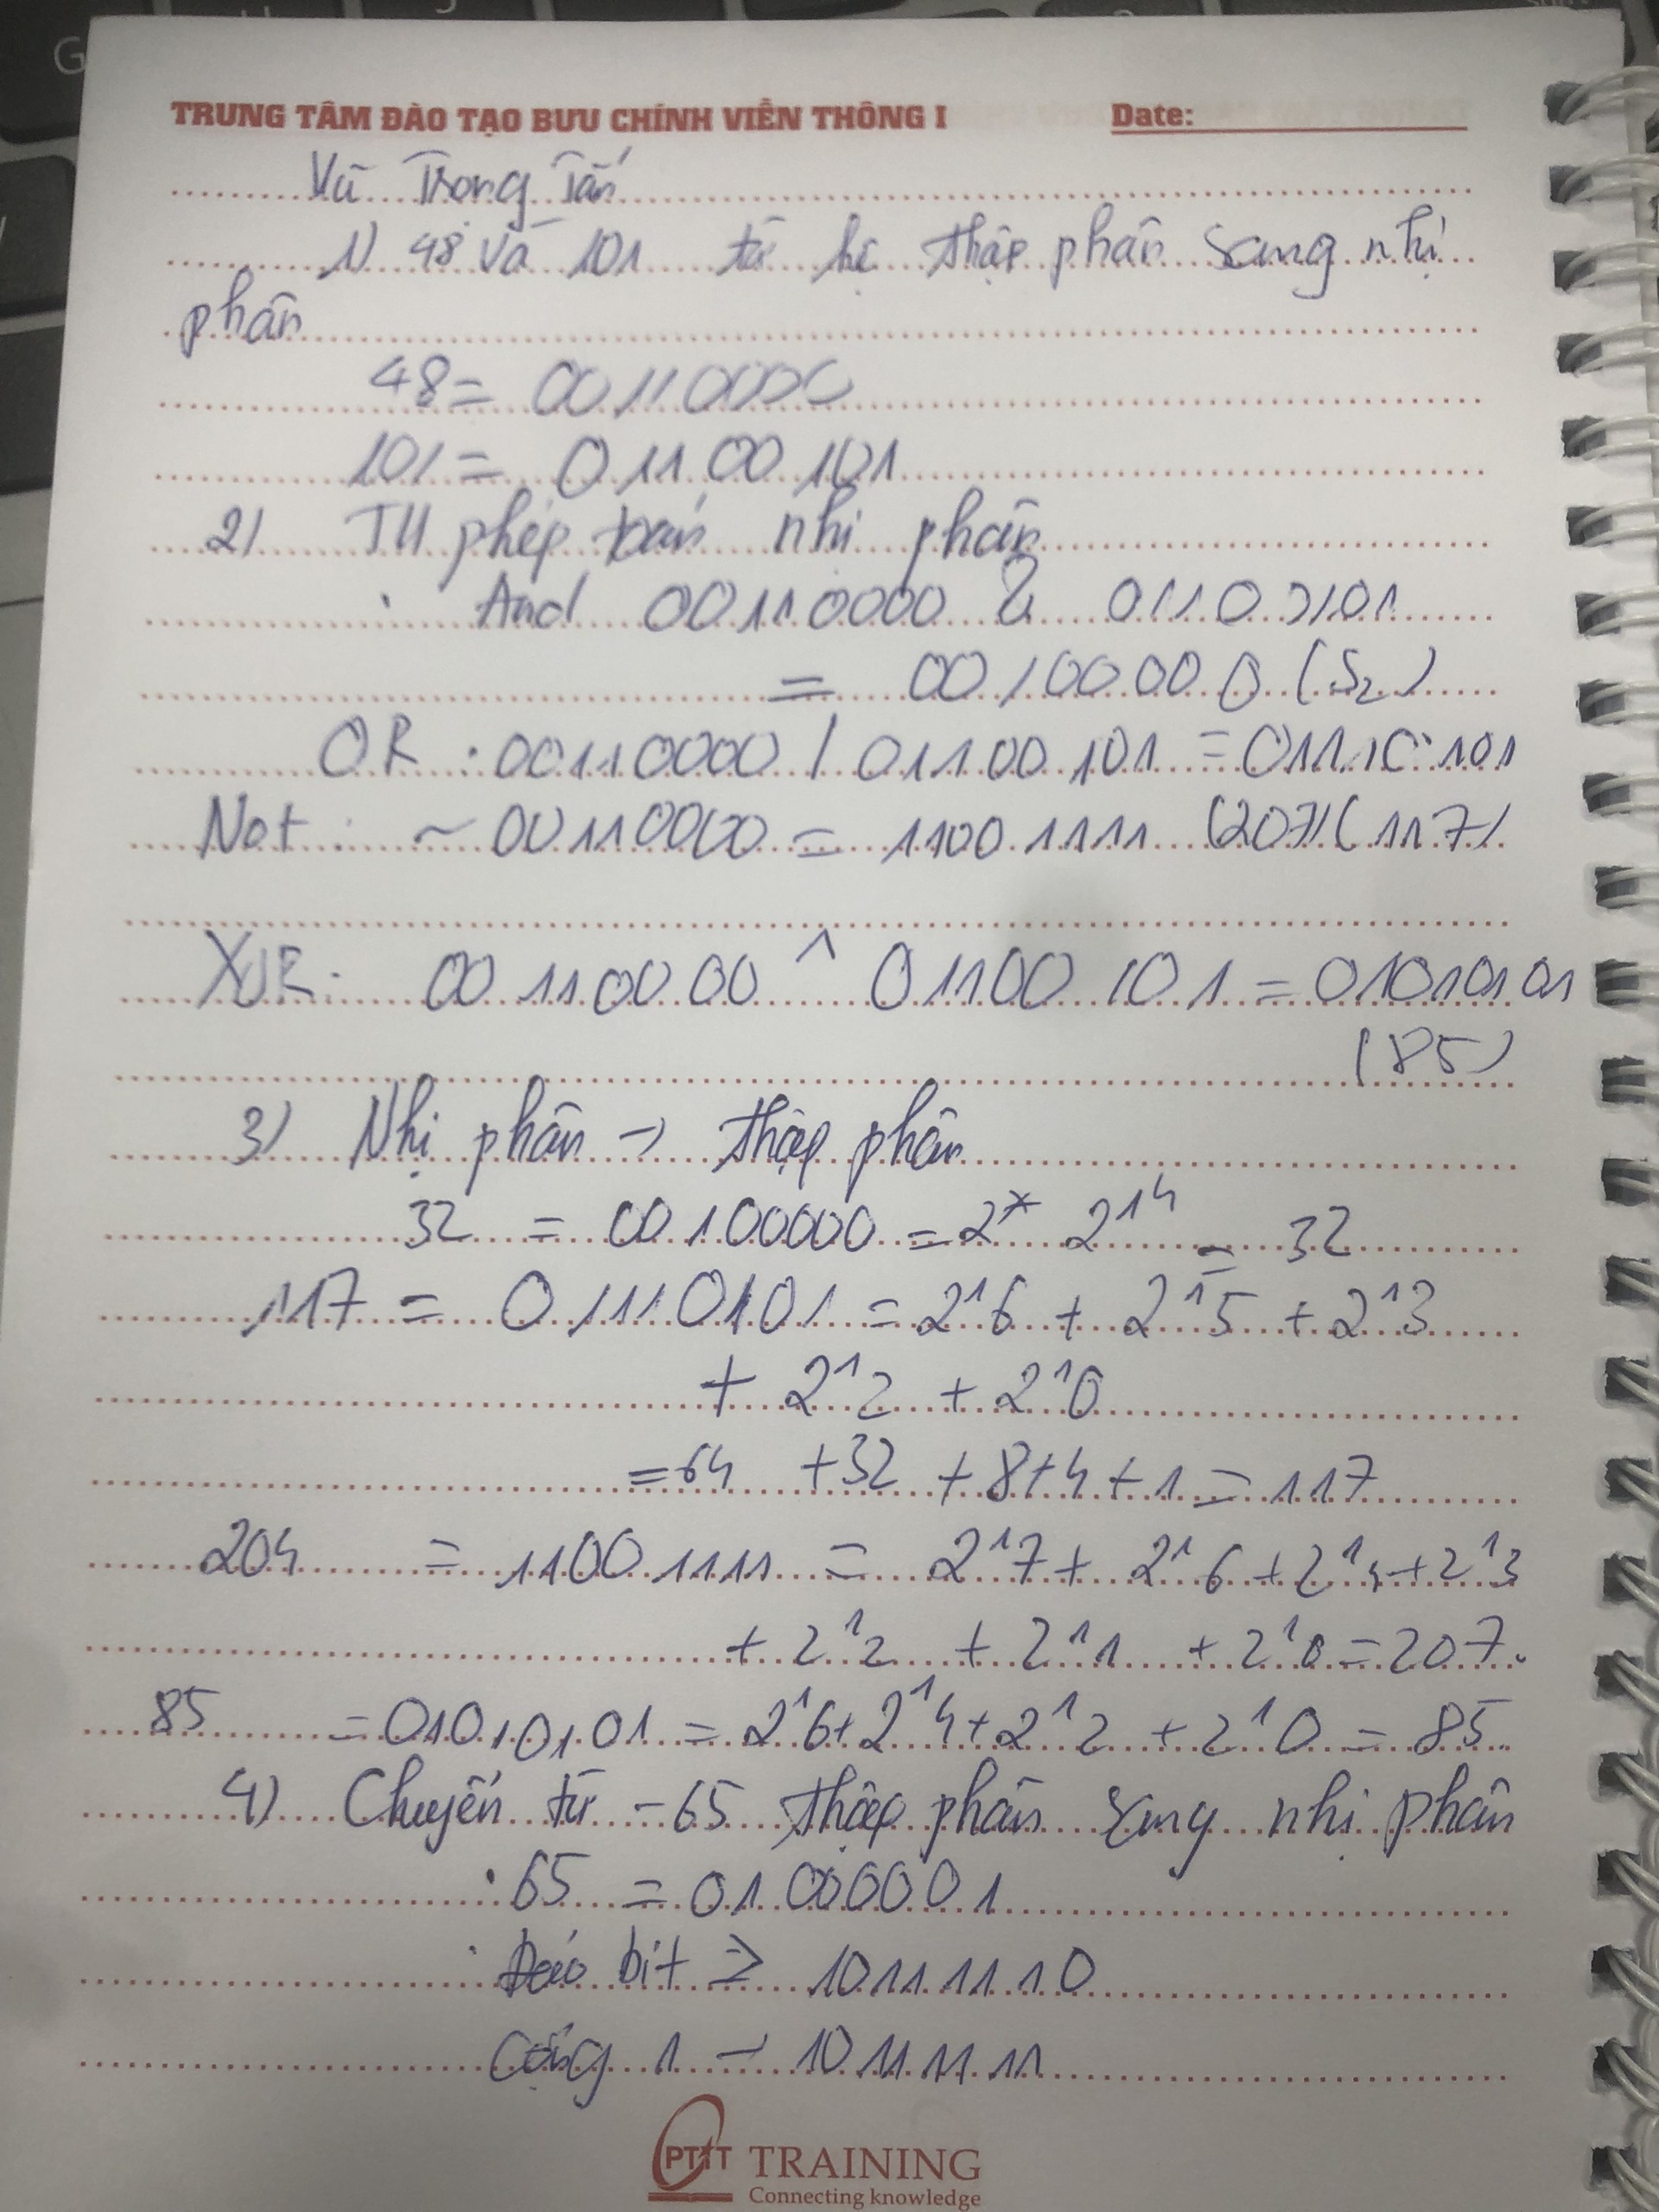 TRUNG TÂM ĐÀO TẠO BƯU CHÍNH VIỄN THÔNG I Date:
Vũ Trọng Tấn
1) 48 và 101 từ hệ thập phân sang nhị
phân
48 = 00110000
101 = 01100101
2) TH phép toán nhị phân
And 00110000 & 01100101
= 00100000 (32)
OR : 00110000 | 01100101 = 01110101
Not : ~ 00110000 = 11001111 (207) (117)
XOR : 00110000 ^ 01100101 = 01010101
(85)
3) Nhị phân → thập phân
32 = 00100000 = 2* 2^4 = 32
117 = 01110101 = 2^6 + 2^5 + 2^3
+ 2^2 + 2^0
= 64 + 32 + 8 + 4 + 1 = 117
204 = 11001111 = 2^7 + 2^6 + 2^4 + 2^3
+ 2^2 + 2^1 + 2^0 = 207.
85 = 01010101 = 2^6 + 2^4 + 2^2 + 2^0 = 85
4) Chuyển từ -65 thập phân sang nhị phân
65 = 01000001
Đảo bit → 10111110
Cộng 1 → 10111111
PTIT TRAINING
Connecting knowledge